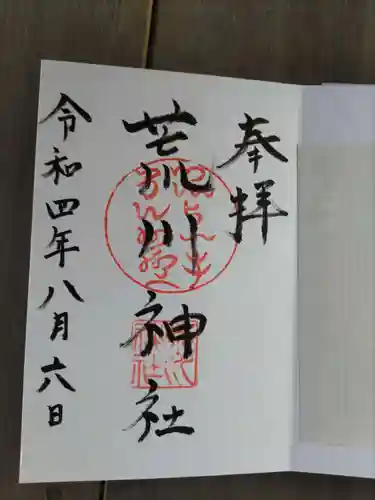 奉拝
荒川神社
令和四年八月六日